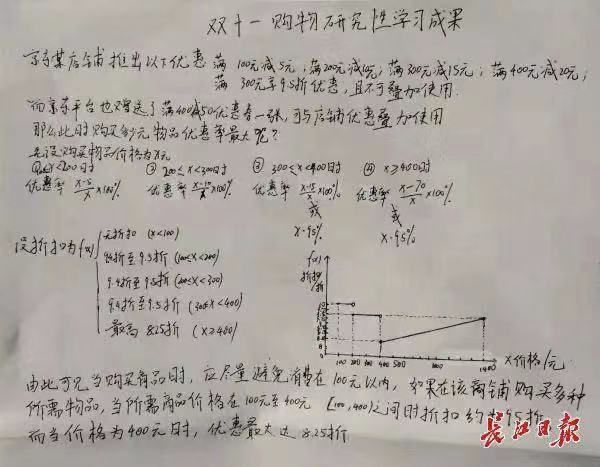 双十一购物研究性学习成果
京东某店铺推出以下优惠 满100元减5元;满200元减10元;满300元减15元;满400元减20元;
满300元享9.5折优惠,且不可叠加使用.
而京东平台也赠送了满400减50优惠卷一张,可与店铺优惠叠加使用
那么此时购买多少元物品优惠率最大呢?
先设购买物品价格为x元
x<200时 ② 200≤x<300时 ③ 300≤x<400时 ④ x≥400时
优惠率 x-5/x ×100% 优惠率 x-10/x ×100% 优惠率 x-15/x ×100% 优惠率 x-70/x ×100%
或 或
x·95% x·95%
设折扣为f(x)
无折扣 (x<100)
9.5折 (100≤x<200)
9.4折至9.5折 (300≤x<400)
最高8.25折 (x≥400)
f(x)
折扣/折
100 200 300 400 500 1400 x价格/元
由此可见,当购买商品时,应尽量避免消费在100元以内,如果在该商铺购买多种
所需物品,当所需商品价格在100元至400元 [100,400)之间时折扣约为95折
而当价格为400元时,优惠最大达8.25折
长江日报